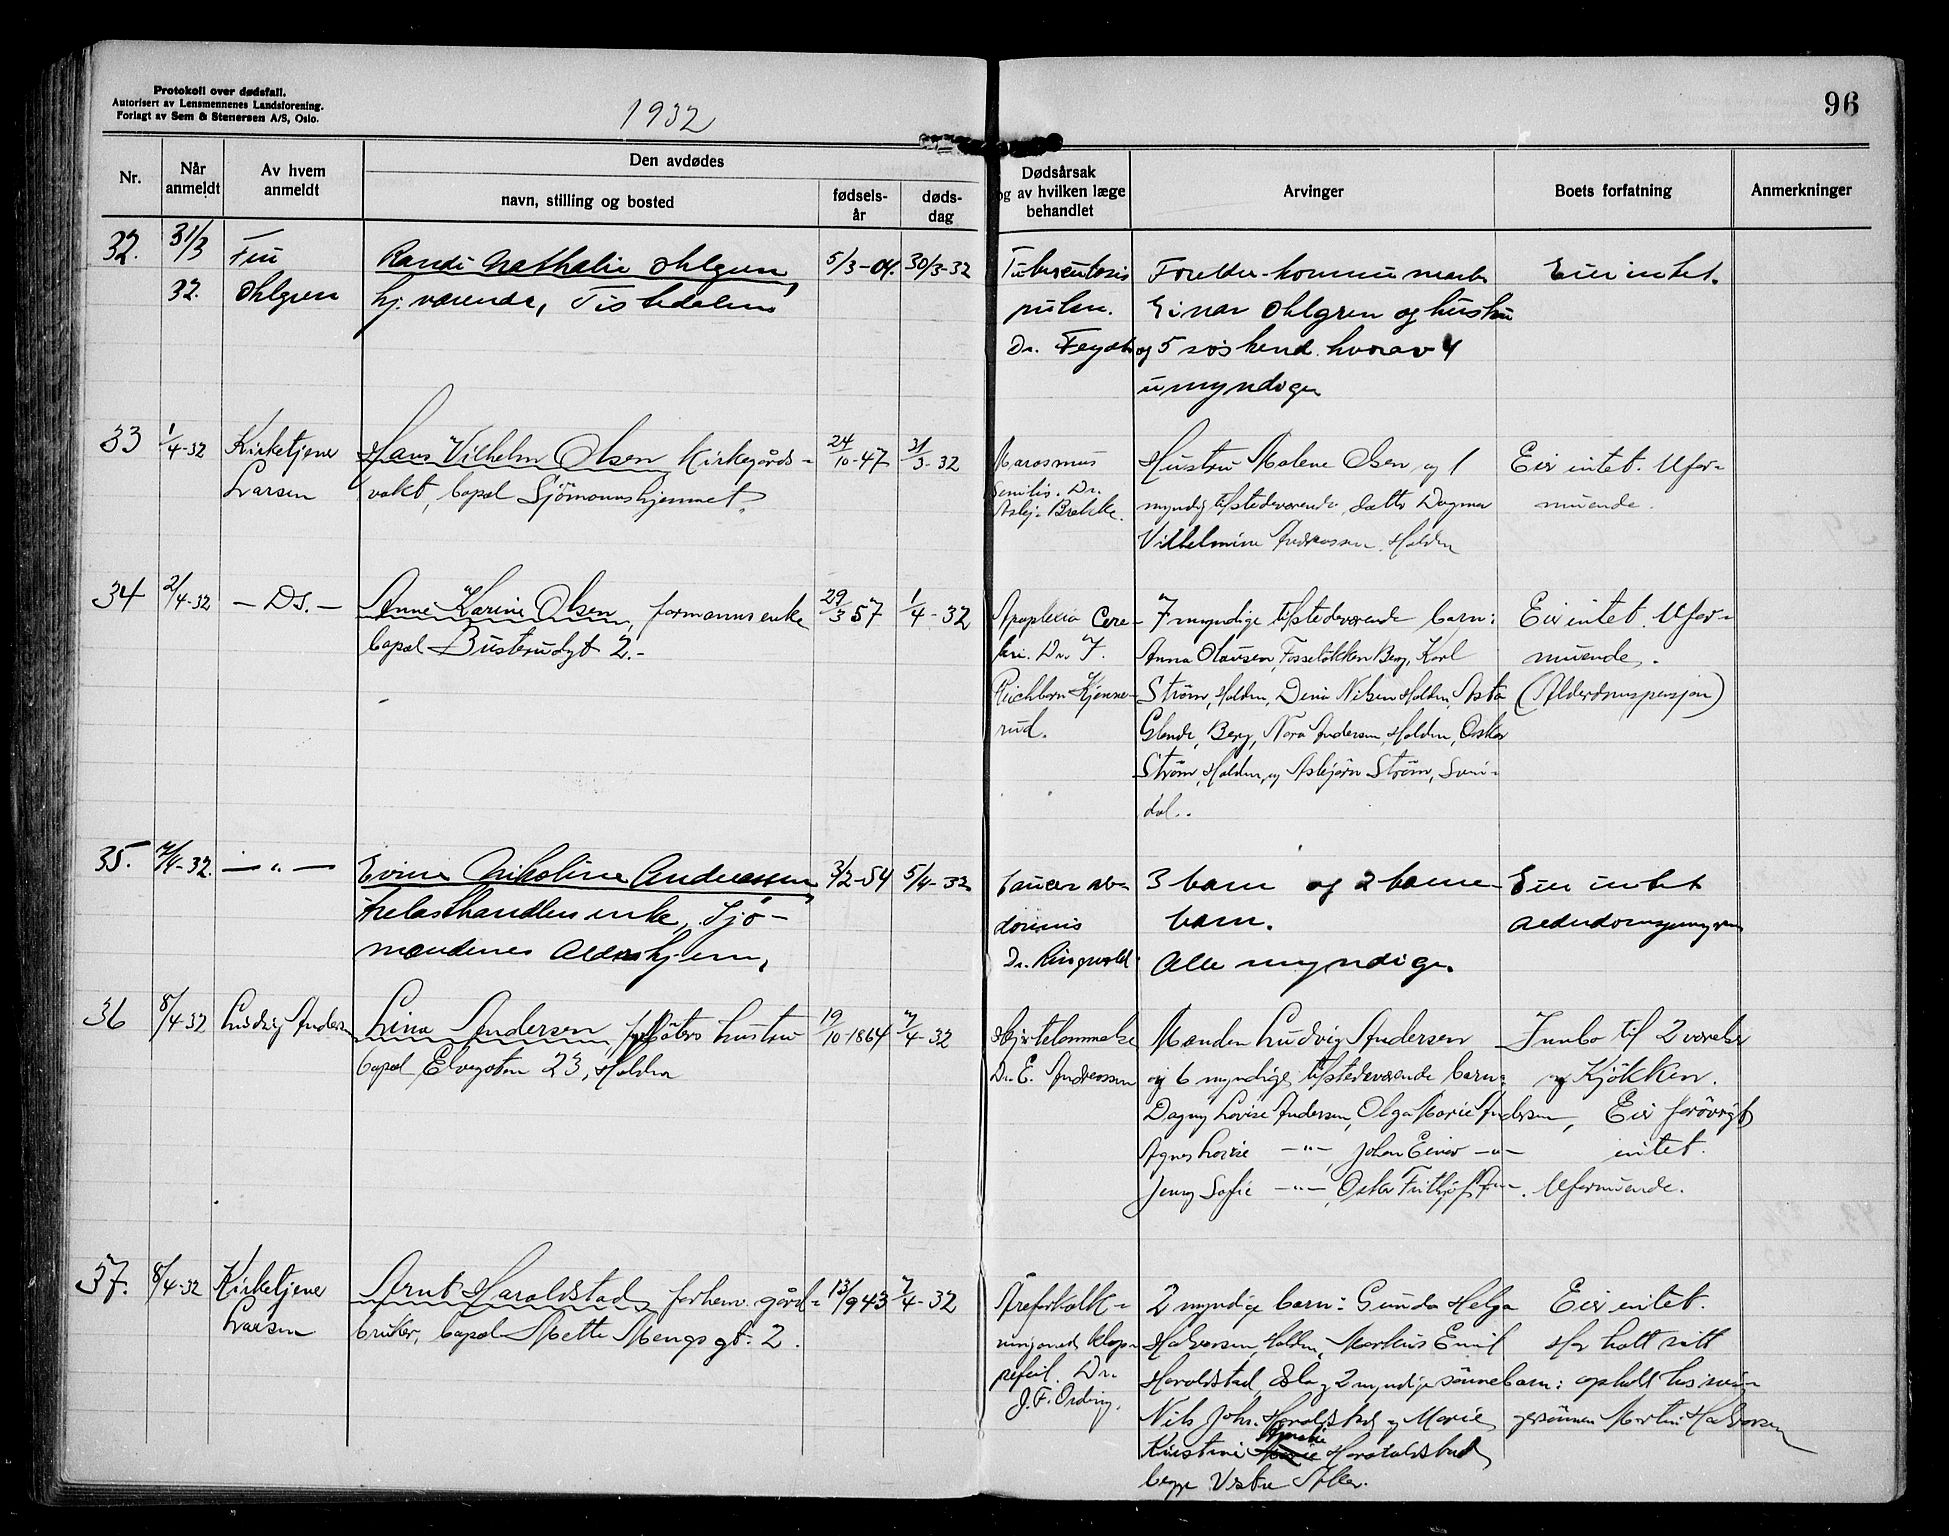 Protokoll over dødsfall.
Autorisert av Lensmennenes Landsforening.
Forlagt av Sem & Stenersen A/S, Oslo.
1932
96
Nr.
Når anmeldt
Av hvem anmeldt
Den avdødes
navn, stilling og bosted
fødsels-år
døds-dag
Dødsårsak og av hvilken læge behandlet
Arvinger
Boets forfatning
Anmerkninger
32. 31/3 32. Fru Ohlgren
Randi Nathalie Ohlgren,
hj. værende, Tistedalen
5/3-04. 30/3-32
Tuberculosis
pulm.
Dr.
Foreldre
Einar Ohlgren og hustru
og 5 søskend. hvorav 4
umyndige
Eier intet.
33 1/4-32 Kirketjener Larsen
Hans Vilhelm Olsen Kirkegårds-
vakt, bopæl Sjömannshjemmet.
24/10-47 31/3-32
Marasmus
Senilis. Dr.
Asbj. Brække.
Hustru Malene Olsen, og 1
myndig tilstedeværende datter Dagmar
Vilhelmine Andreassen, Halden
Eier intet. Ufor-
muende.
34 2/4-32 — Ds. —
Anne Karine Olsen, formannsenke
bopæl Busterudgt 2.-
29/3 57 1/4-32
Apoplexia Cere-
bri. Dr. F.
Eichborn Kjenne-
rud.
7 myndige tilstedeværende barn:
Anna Olausen, Fosseløkken Berg, Karl
Ström, Halden, Dina Nilsen Halden, Asta
Glende, Berg, Nora Andersen, Halden, Oskar
Ström, Halden, og Asbjørn Ström, Svin-
dal.
Eier intet. Ufor-
muende.
(Alderdomspensjon)
35. 7/4-32. — " —
Nikoline Andreassen,
trelasthandlers enke, Sjö-
mændenes Aldershjem,
3/2-54 5/4-32
Cancer ab-
dominis
Dr. Ringvold
3 barn og 2 barne-
barn.
Alle myndige.
Eier intet
36 8/4-32 Ludvig Andersen
Lina Andersen, hustru
bopæl Elvegaten 23, Halden
19/10-1864 7/4-32
Hjertelammelse
Dr. E. Andreassen
Manden Ludvig Andersen
og 6 myndige tilstedeværende barn:
Dagny Lovise Andersen, Olga Marie Andersen,
Agnes Lovise —"—, Johan Einar —"—
Jenny Sofie —"—, Oskar Frithjof An—.
Innbo til 2 værelser
og Kjökken.
Eier forövrigt
intet.
Uformuende.
37. 8/4-32 Kirketjener Larsen
Arnt Haraldstad, forhenv. gård-
bruker, bopæl Mette Mengs gt. 2.
13/9 43 7/4-32
Åreforkalk-
ning med klap-
pefeil. Dr.
J. F. Ording.
2 myndige barn: Gunda Helga
Halvorsen, Halden, Markus Emil
Haraldstad, Oslo og 2 myndige sönnebarn:
Nils Joh. Haraldstad og Marie
Kristine Amalie Haraldstad
begge Vestre Aker.
Eier intet.
Har hatt sitt
ophold hos svi-
gersönnen Martin Halvorsen